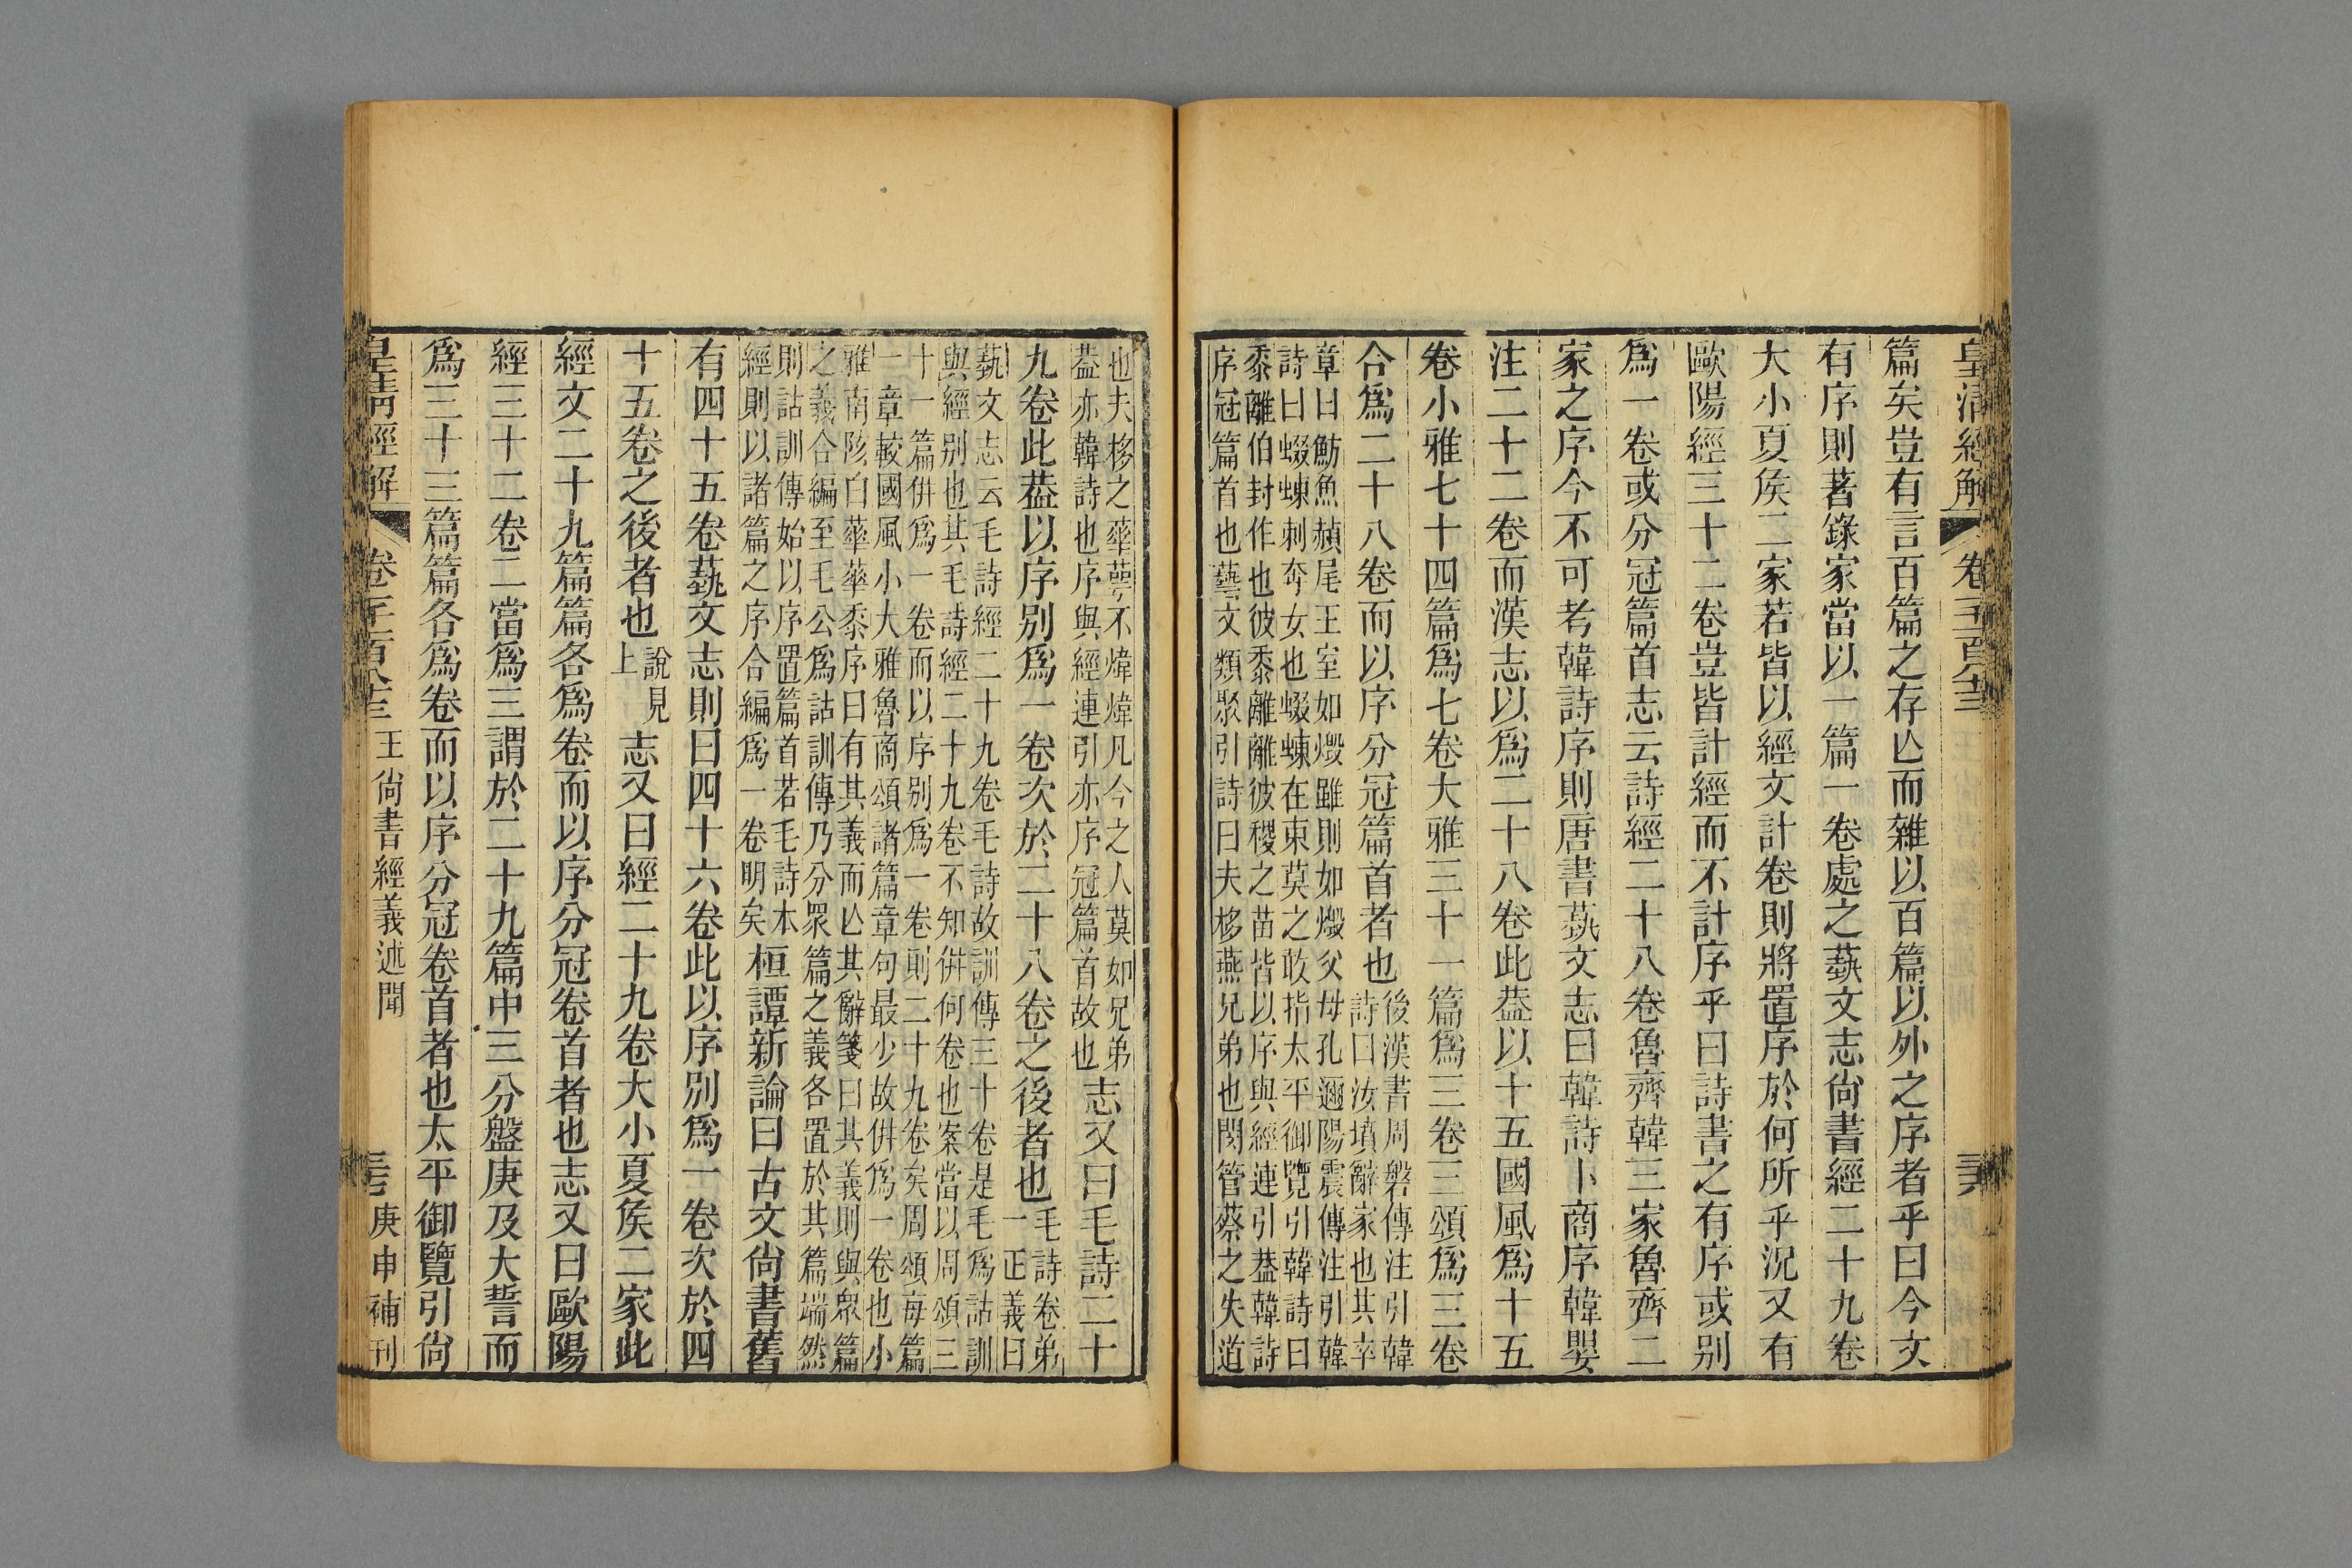 皇清經解 卷一千一百八十三 三六
篇矣豈有言百篇之存亾而雜以百篇以外之序者乎曰今文
有序則著錄家當以一篇一卷處之蓺文志尙書經二十九卷
大小夏矦二家若皆以經文計卷則將置序於何所乎況又有
歐陽經三十二卷豈皆計經而不計序乎曰詩書之有序或别
爲一卷或分冠篇首志云詩經二十八卷魯齊韓三家魯齊二
家之序今不可考韓詩序則唐書蓺文志曰韓詩卜商序韓嬰
注二十二卷而漢志以爲二十八卷此葢以十五國風爲十五
卷小雅七十四篇爲七卷大雅三十一篇爲三卷三頌爲三卷
合爲二十八卷而以序分冠篇首者也
後漢書周磐傳注引韓
詩曰汝墳辭家也其卒
章曰魴魚赬尾王室如燬雖則如燬父母孔邇陽震傳注引韓
詩曰蝃蝀刺奔女也蝃蝀在東莫之敢指太平御覽引韓詩曰
黍離伯封作也彼黍離離彼稷之苗皆以序與經連引葢韓詩
序冠篇首也藝文類聚引詩曰夫栘燕兄弟也閔管蔡之失道
也夫栘之華萼不煒煒凡今之人莫如兄弟
葢亦韓詩也序與經連引亦序冠篇首故也
志又曰毛詩二十
九卷此葢以序别爲一卷次於二十八卷之後者也
毛詩卷弟
一正義曰
蓺文志云毛詩經二十九卷毛詩故訓傳三十卷是毛爲詁訓
與經别也其毛詩經二十九卷不知併何卷也案當以周頌三
十一篇併爲一卷而以序别爲一卷則二十九卷矣周頌每篇
一章較國風小大雅魯商頌諸篇章句最少故併爲一卷也小
雅南陔白華華黍序曰有其義而亾其辭箋曰其義則與眾篇
之義合編至毛公爲詁訓傳乃分眾篇之義各置於其篇端然
則詁訓傳始以序置篇首若毛詩本
經則以諸篇之序合編爲一卷明矣
桓譚新論曰古文尙書舊
有四十五卷蓺文志則曰四十六卷此以序别爲一卷次於四
十五卷之後者也
說見
上
志又曰經二十九卷大小夏矦二家此
經文二十九篇篇各爲卷而以序分冠卷首者也志又曰歐陽
經三十二卷二當爲三謂於二十九篇中三分盤庚及大誓而
爲三十三篇篇各爲卷而以序分冠卷首者也太平御覽引尙
皇清經解 卷一千一百八十三 王尙書經義述聞 三七 庚申補刊